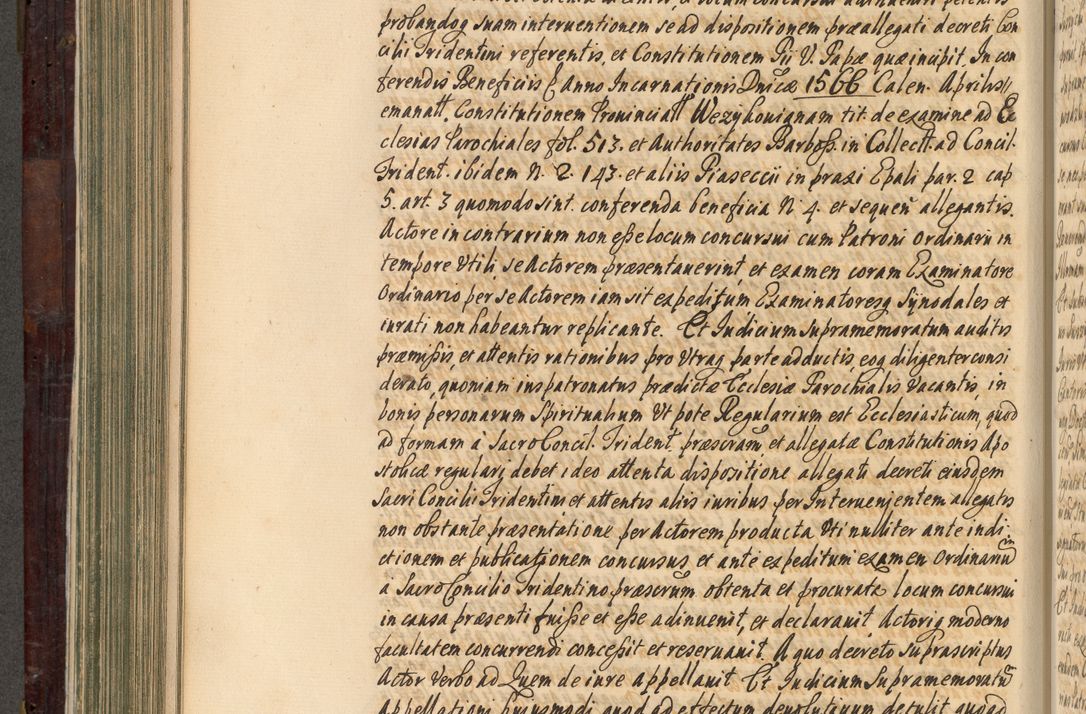 probandoq suam interventionem se ad dispositionem præallegati decreti Con
cilii Tridentini referentis, et Constitutionem Pii V. Papæ quæ incipit. In con
ferendis Beneficiis Anno Incarnationis Dnicæ 1566 Calen. Aprilis
emanatt. Constitutionem Provincialt Wezykovianam tit. de examine ad Ec
clesias Parochiales fol. 513. et Authoritates Barboß. in Collectt. ad Concil.
Trident. ibidem N. 2. 143. et aliis Piaseccii in praxi Epali par. 2 cap
5. art. 3 quomodo sint conferenda beneficia N. 4. et sequen allegantis.
Actore in contrarium non eße locum concursui cum Patroni Ordinarii in
tempore Utili se Actorem præsentaverint, et examen coram Examinatore
Ordinario per se Actorem iam sit expeditum Examinatoresq Synodales et
iurati non habeantur replicante. Et Iudicium supramemoratum auditis
præmißis, et attentis rationibus pro Utraq parte adductis, eoq diligenter consi
derato, quoniam ius patronatus prædictæ Ecclesiæ Parochialis Vacantis, in
bonis personarum Spiritualium Ut pote Regularium est Ecclesiasticum, quod
ad formam a Sacro Concil. Trident. præscriam, et allegatæ Constitutionis Apo
stolicæ regulari debet ideo attenta dispositione allegati decreti eiusdem
Sacri Concilii Tridentini et attentis aliis iuribus per Intervenientem allegatis
non obstante præsentatione per Actorem producta Uti nulliter ante indi
ctionem et publicationem concursus et ante expeditum examen Ordinarium
a Sacro Concilio Tridentino præscrum obtenta et procurata locum concursui
in causa præsenti fuiße et eße adinvenit, et declaravit Actoriq moderno
facultatem concurrendi conceßit et reservavit. A quo decreto suprascriptus
Actor Verbo ad Quem de iure appellavit. Et Iudicium Supramemoratum
Appellationi huiusmodi quod ad effectum devolutivum detulit quoad